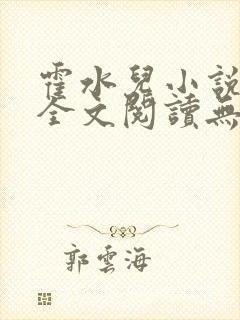 霍水兒小說
全文閱讀無
郭雲海